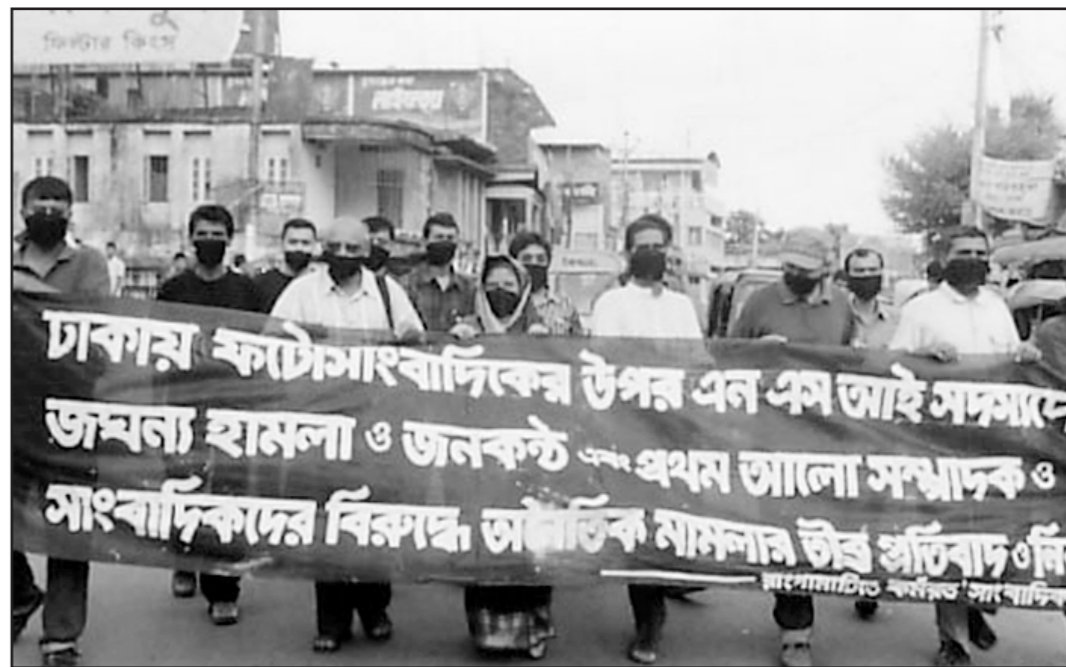 ফিল্টার কিংস
ঢাকায় ফটোসাংবাদিকের উপর এন এস আই সদস্যদে
জঘন্য হামলা ও জনকন্ঠ এবং প্রথম আলো সম্পাদক ও
সাংবাদিকদের বিরুদ্ধে অনৈতিক মামলার তীব্র প্রতিবাদ ও নি
রাংগামাটিতে কর্মরত সাংবাদিক